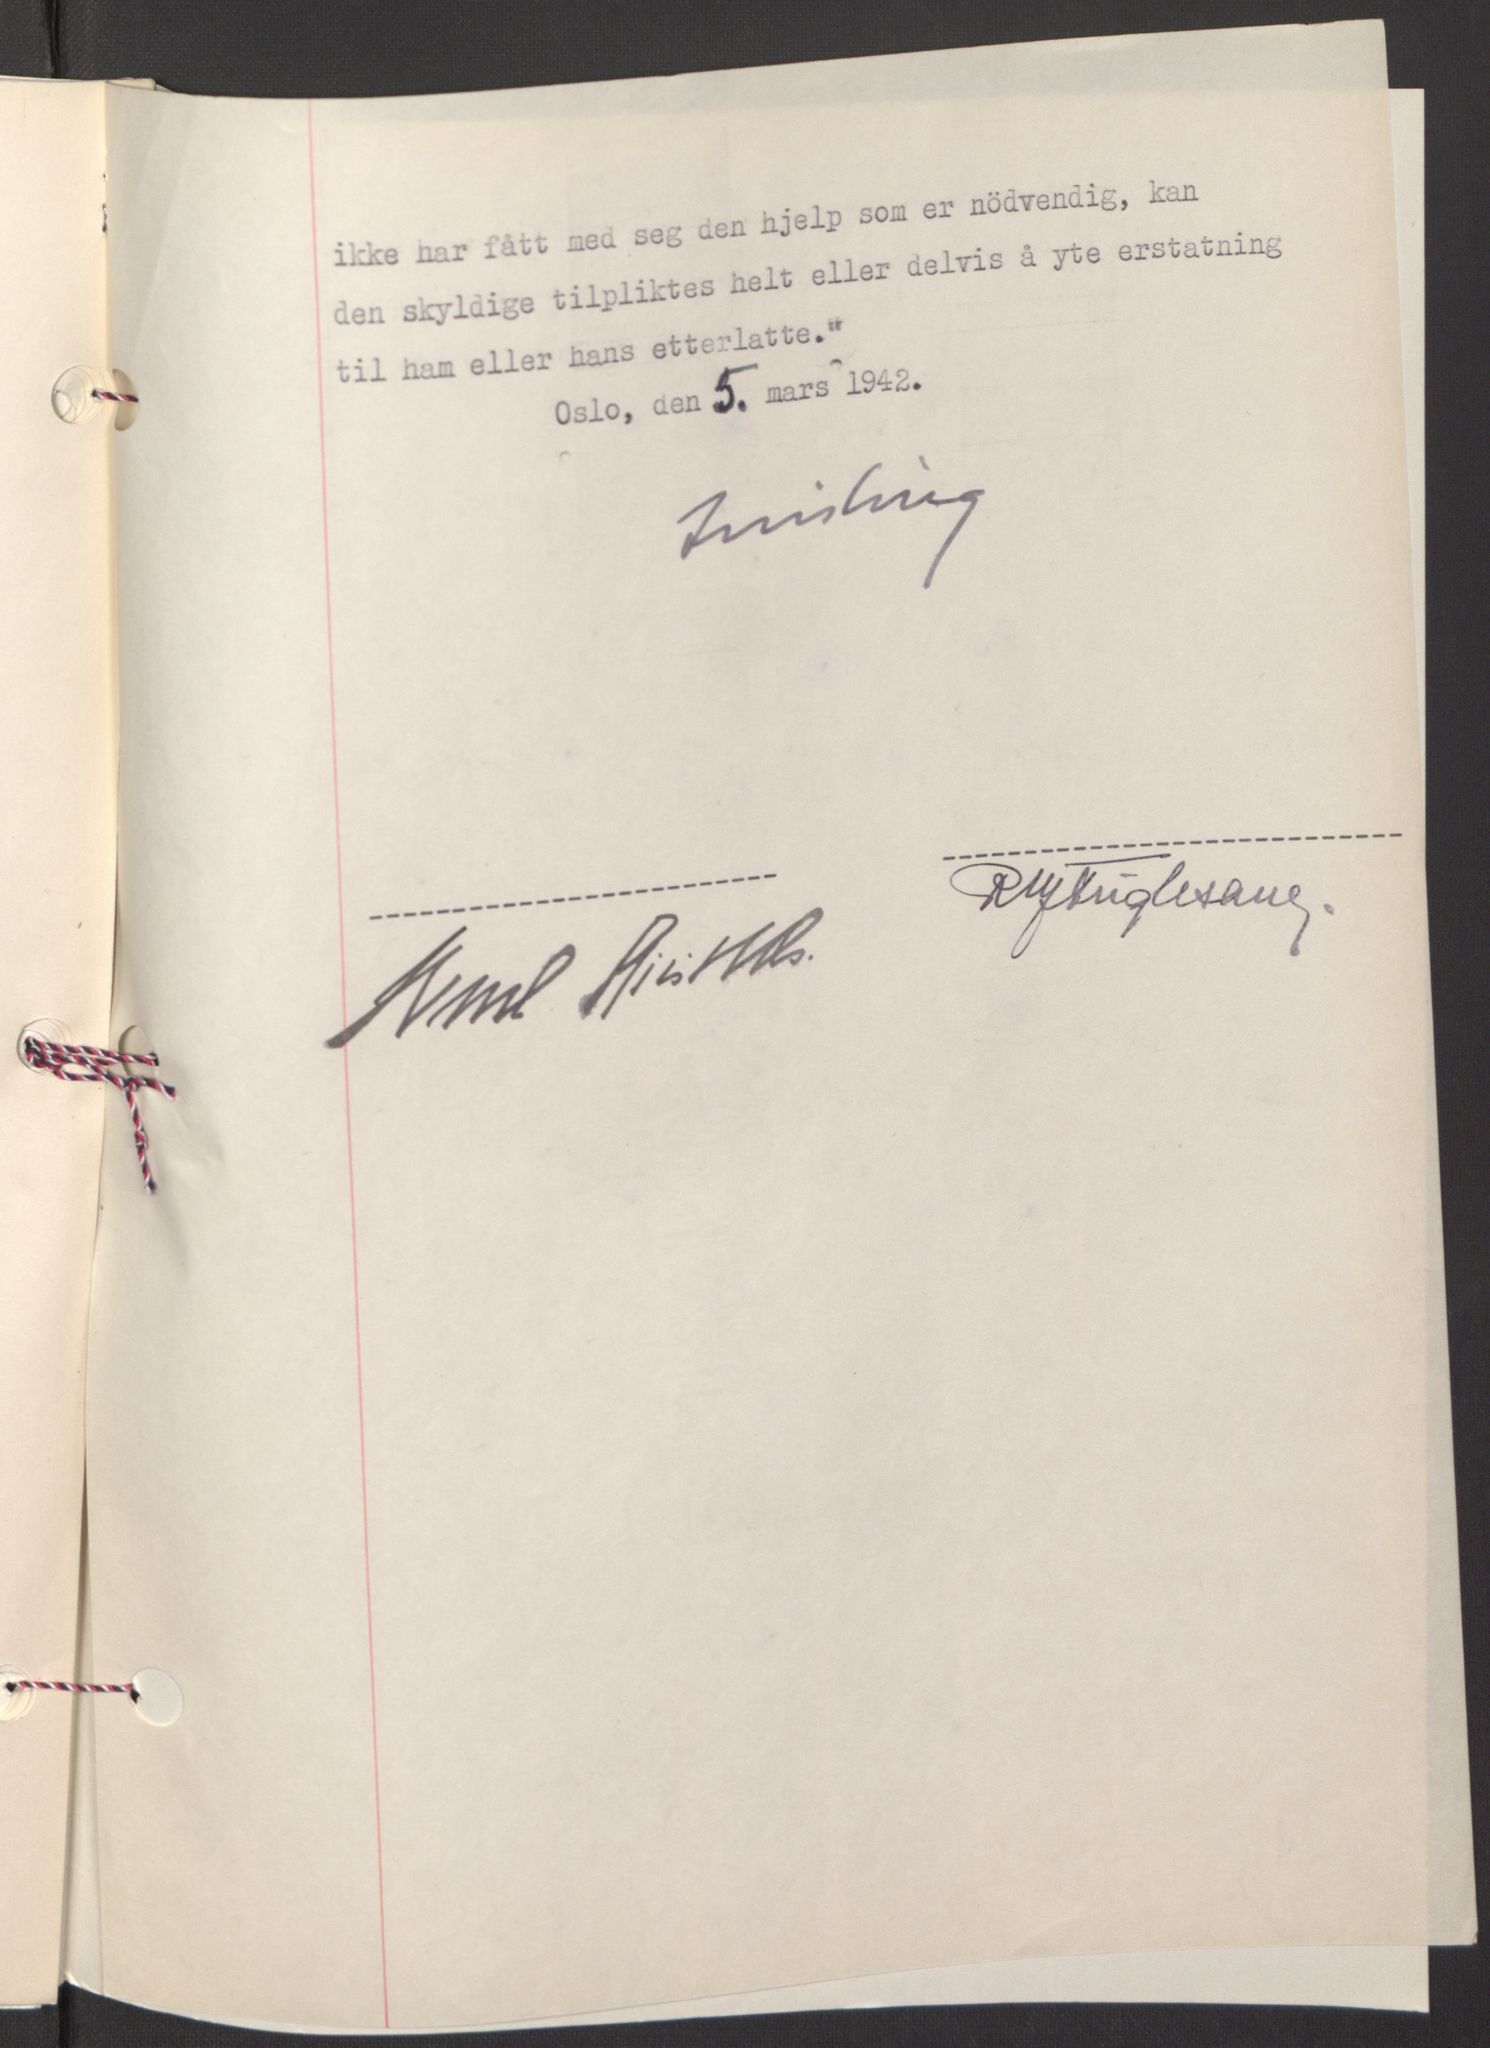 ikke har fått med seg den hjelp som er nödvendig, kan
den skyldige tilpliktes helt eller delvis å yte erstatning
til ham eller hans etterlatte."
Oslo, den 5. mars 1942.
Quisling
R J Fuglesang.